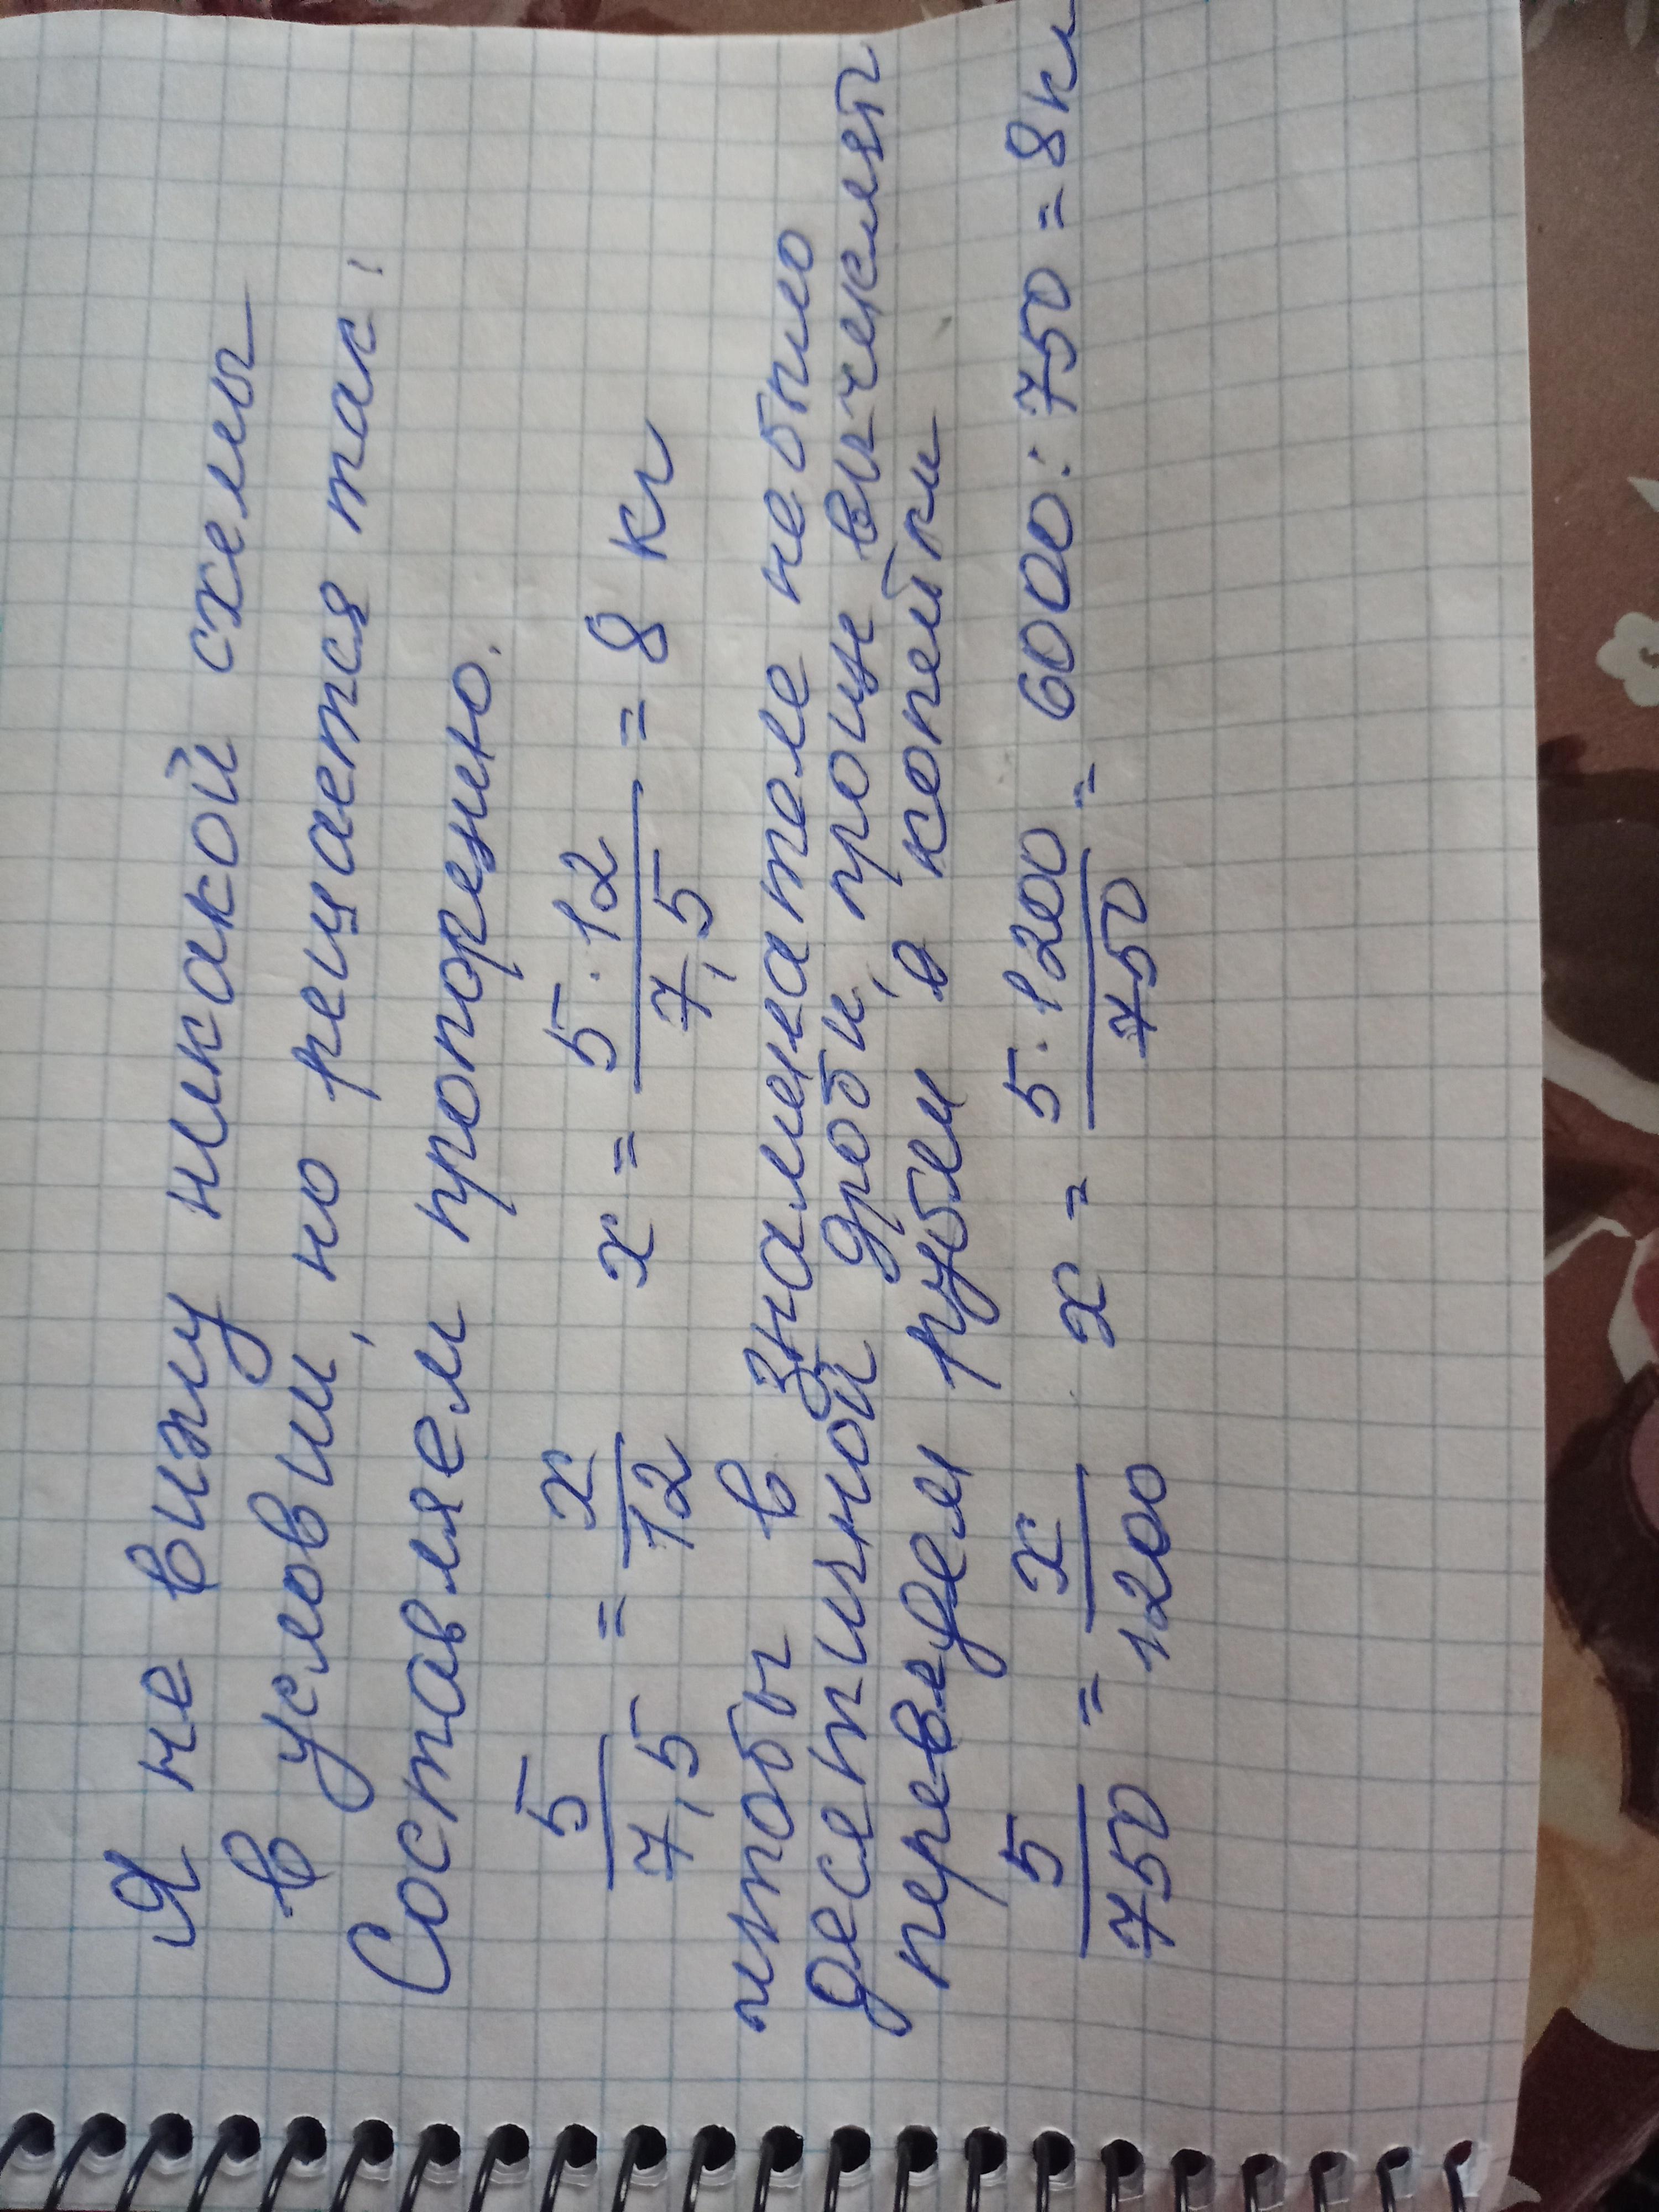 Я не вижу никакой схемы
в условии, но решается так:
Составляем пропорцию.
5/7,5 = x/12 x = 5·12/7,5 = 8 кг
чтобы в знаменателе не было
десятичной дроби, проще вычислять
переведем рубли в копейки
5/750 = x/1200 x = 5·1200/750 = 6000:750 = 8 кг